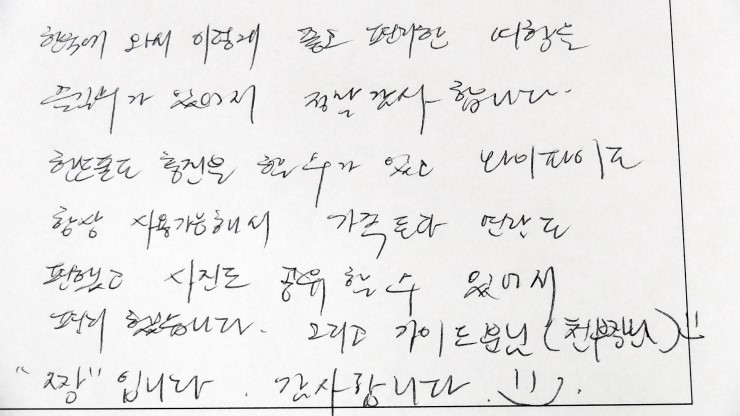 한국에 와서 이렇게 좋고 편리한 여행을
즐길 수가 있어서 정말 감사 합니다.
핸드폰도 충전을 할 수가 있고 와이파이도
항상 사용가능해서 가족들과 연락도
편했고 사진도 공유 할 수 있어서
편리 했습니다. 그리고 가이드분님 ( )
"짱" 입니다. 감사합니다.